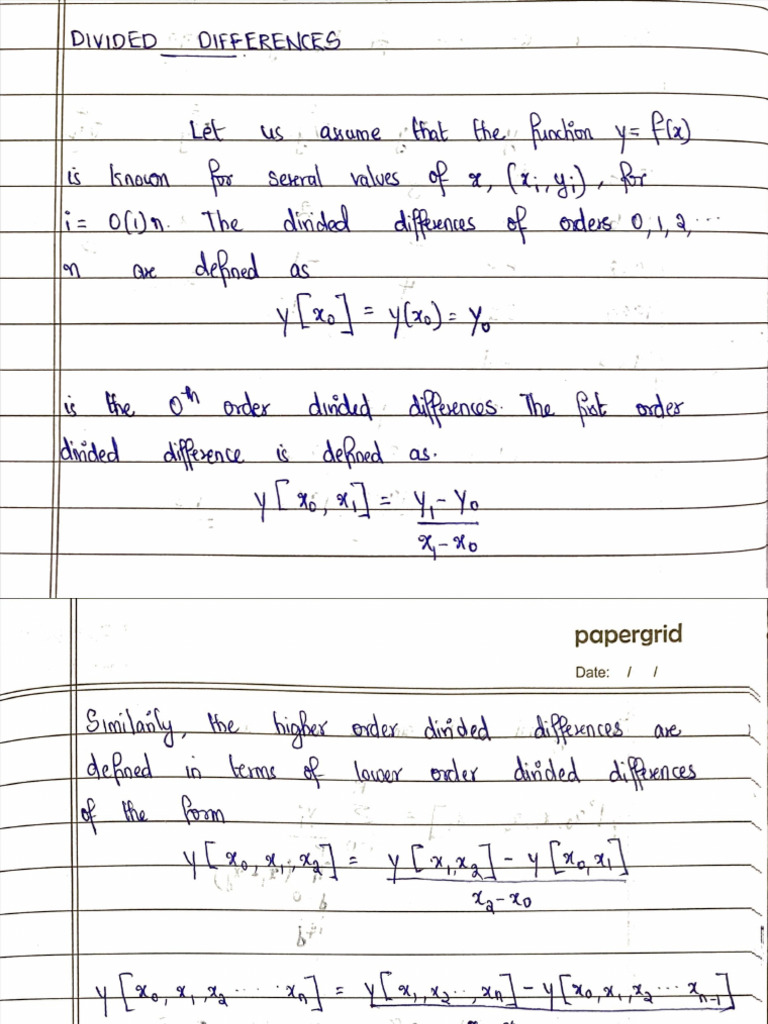 DIVIDED DIFFERENCES
Let us assume that the function y = f(x)
is known for several values of x, (xi, yi), for
i = 0(1)n. The divided differences of orders 0, 1, 2, ...
n are defined as
y[x₀] = y(x₀) = y₀
is the 0th order divided differences. The first order
divided difference is defined as.
y[x₀, x₁] = y₁ - y₀
x₁ - x₀
papergrid
Date: / /
Similarly, the higher order divided differences are
defined in terms of lower order divided differences
of the form
y[x₀, x₁, x₂] = y[x₁, x₂] - y[x₀, x₁]
x₂ - x₀
y[x₀, x₁, x₂ ..... xₙ] = y[x₁, x₂ .., xₙ] - y[x₀, x₁, x₂ ... xₙ₋₁]